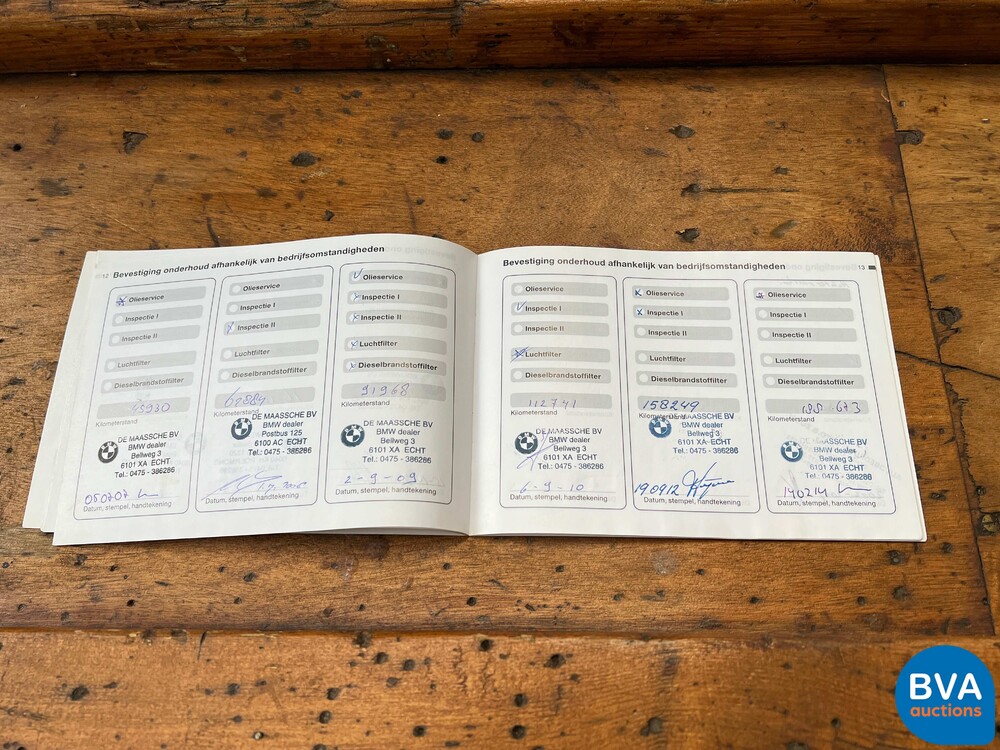 12 Bevestiging onderhoud afhankelijk van bedrijfsomstandigheden
Olieservice
Inspectie I
Inspectie II
Luchtfilter
Dieselbrandstoffilter
Kilometerstand
DE MAASSCHE BV
BMW dealer
Bellweg 3
6101 XA ECHT
Tel.: 0475 - 386286
050707
Datum, stempel, handtekening
Olieservice
Inspectie I
Inspectie II
Luchtfilter
Dieselbrandstoffilter
62884
Kilometerstand
DE MAASSCHE BV
BMW dealer
Postbus 125
6100 AC ECHT
Tel.: 0475 - 386286
Datum, stempel, handtekening
Olieservice
Inspectie I
Inspectie II
Luchtfilter
Dieselbrandstoffilter
91968
Kilometerstand
DE MAASSCHE BV
BMW dealer
Bellweg 3
6101 XA ECHT
Tel.: 0475 - 386286
2-9-09
Datum, stempel, handtekening
Bevestiging onderhoud afhankelijk van bedrijfsomstandigheden 13
Olieservice
Inspectie I
Inspectie II
Luchtfilter
Dieselbrandstoffilter
112741
Kilometerstand
DE MAASSCHE BV
BMW dealer
Bellweg 3
6101 XA ECHT
Tel.: 0475 - 386286
6-9-10
Datum, stempel, handtekening
Olieservice
Inspectie I
Inspectie II
Luchtfilter
Dieselbrandstoffilter
158249
Kilometerstand
DE MAASSCHE BV
BMW dealer
Bellweg 3
6101 XA ECHT
Tel.: 0475 - 386286
190912
Datum, stempel, handtekening
Olieservice
Inspectie I
Inspectie II
Luchtfilter
Dieselbrandstoffilter
Kilometerstand
DE MAASSCHE BV
BMW dealer
Bellweg 3
6101 XA ECHT
Tel.: 0475 - 386286
140214
Datum, stempel, handtekening
BVA
auctions